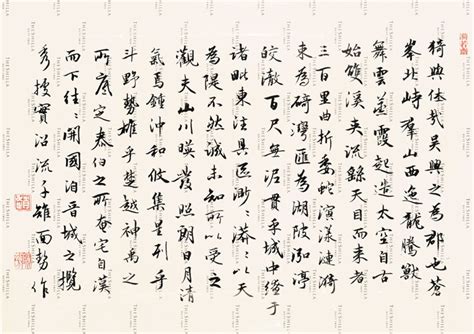 猗與休哉吳興之為郡也蒼
峯北峙群山西迤龍騰獸
舞雲蒸霞起造太空自古
始雙溪夾流繇天目而來者
三百里曲折委蛇演漾漣漪
束為碕灣匯為湖陂泓渟
皎澈百尺無泥貫乎城中繚于
諸毗東注具區渺〻漭〻以天
為隄不然誠未知所以受之
觀夫山川暎發照朗日月清
氣焉鍾沖和攸集星列乎
斗野勢雄乎楚越神禹之
所底定泰伯之所奄宅自漢
而下往〻開國洎晉城之攬
秀據實沿流千雉面勢作
THE SHILLA